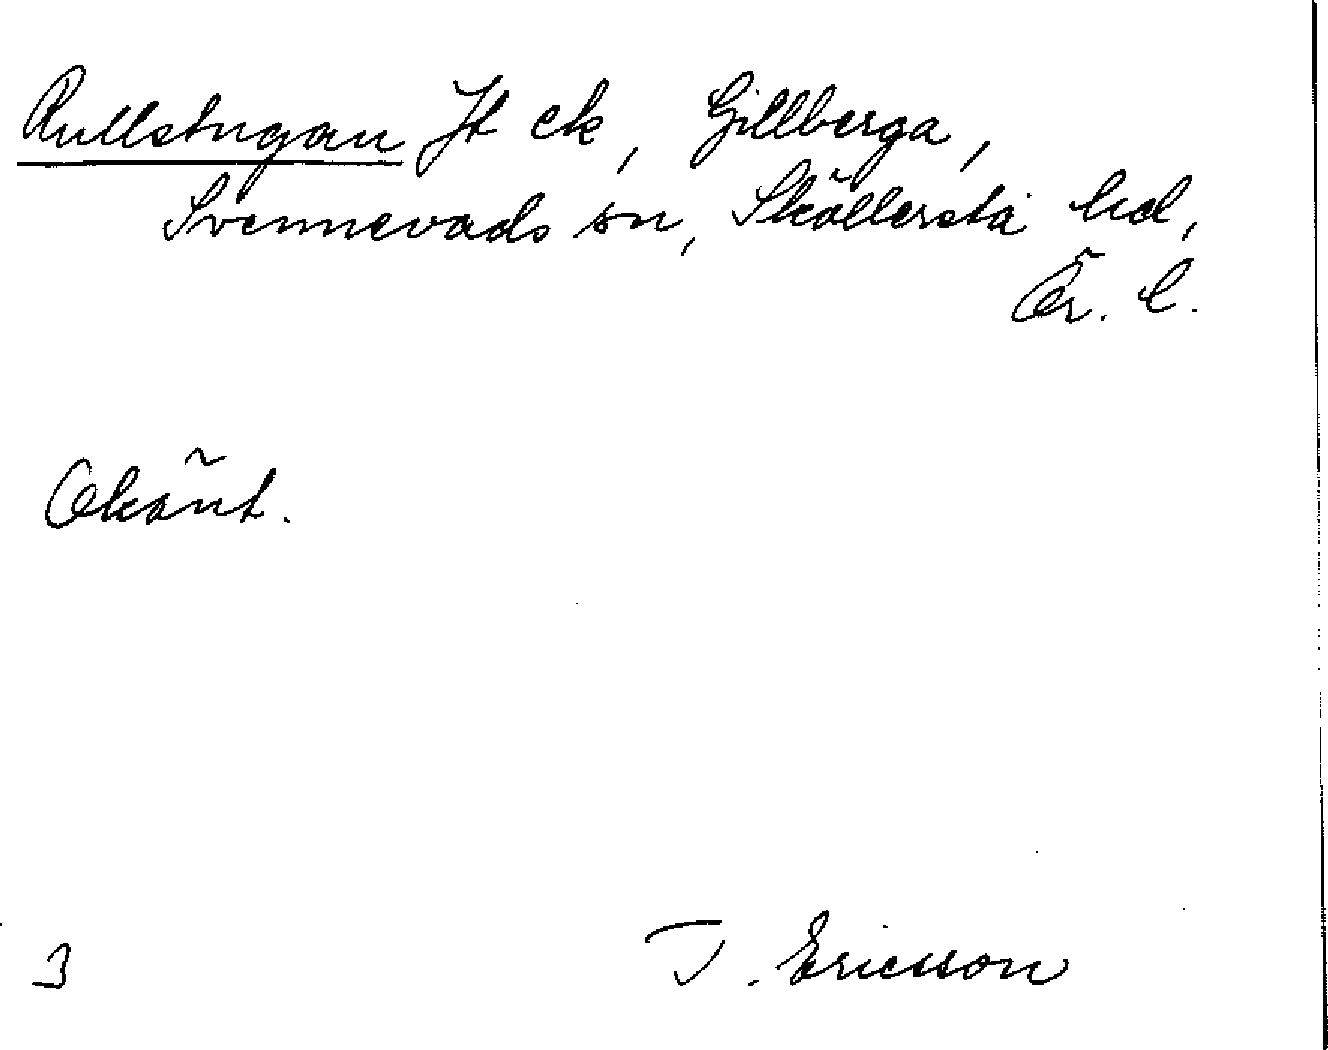 Rullstugan Jt ek, Gillberga,
Svennevads sn, Sköllersta hd,
Ör. l.
Okänt.
3
T. Ericsson